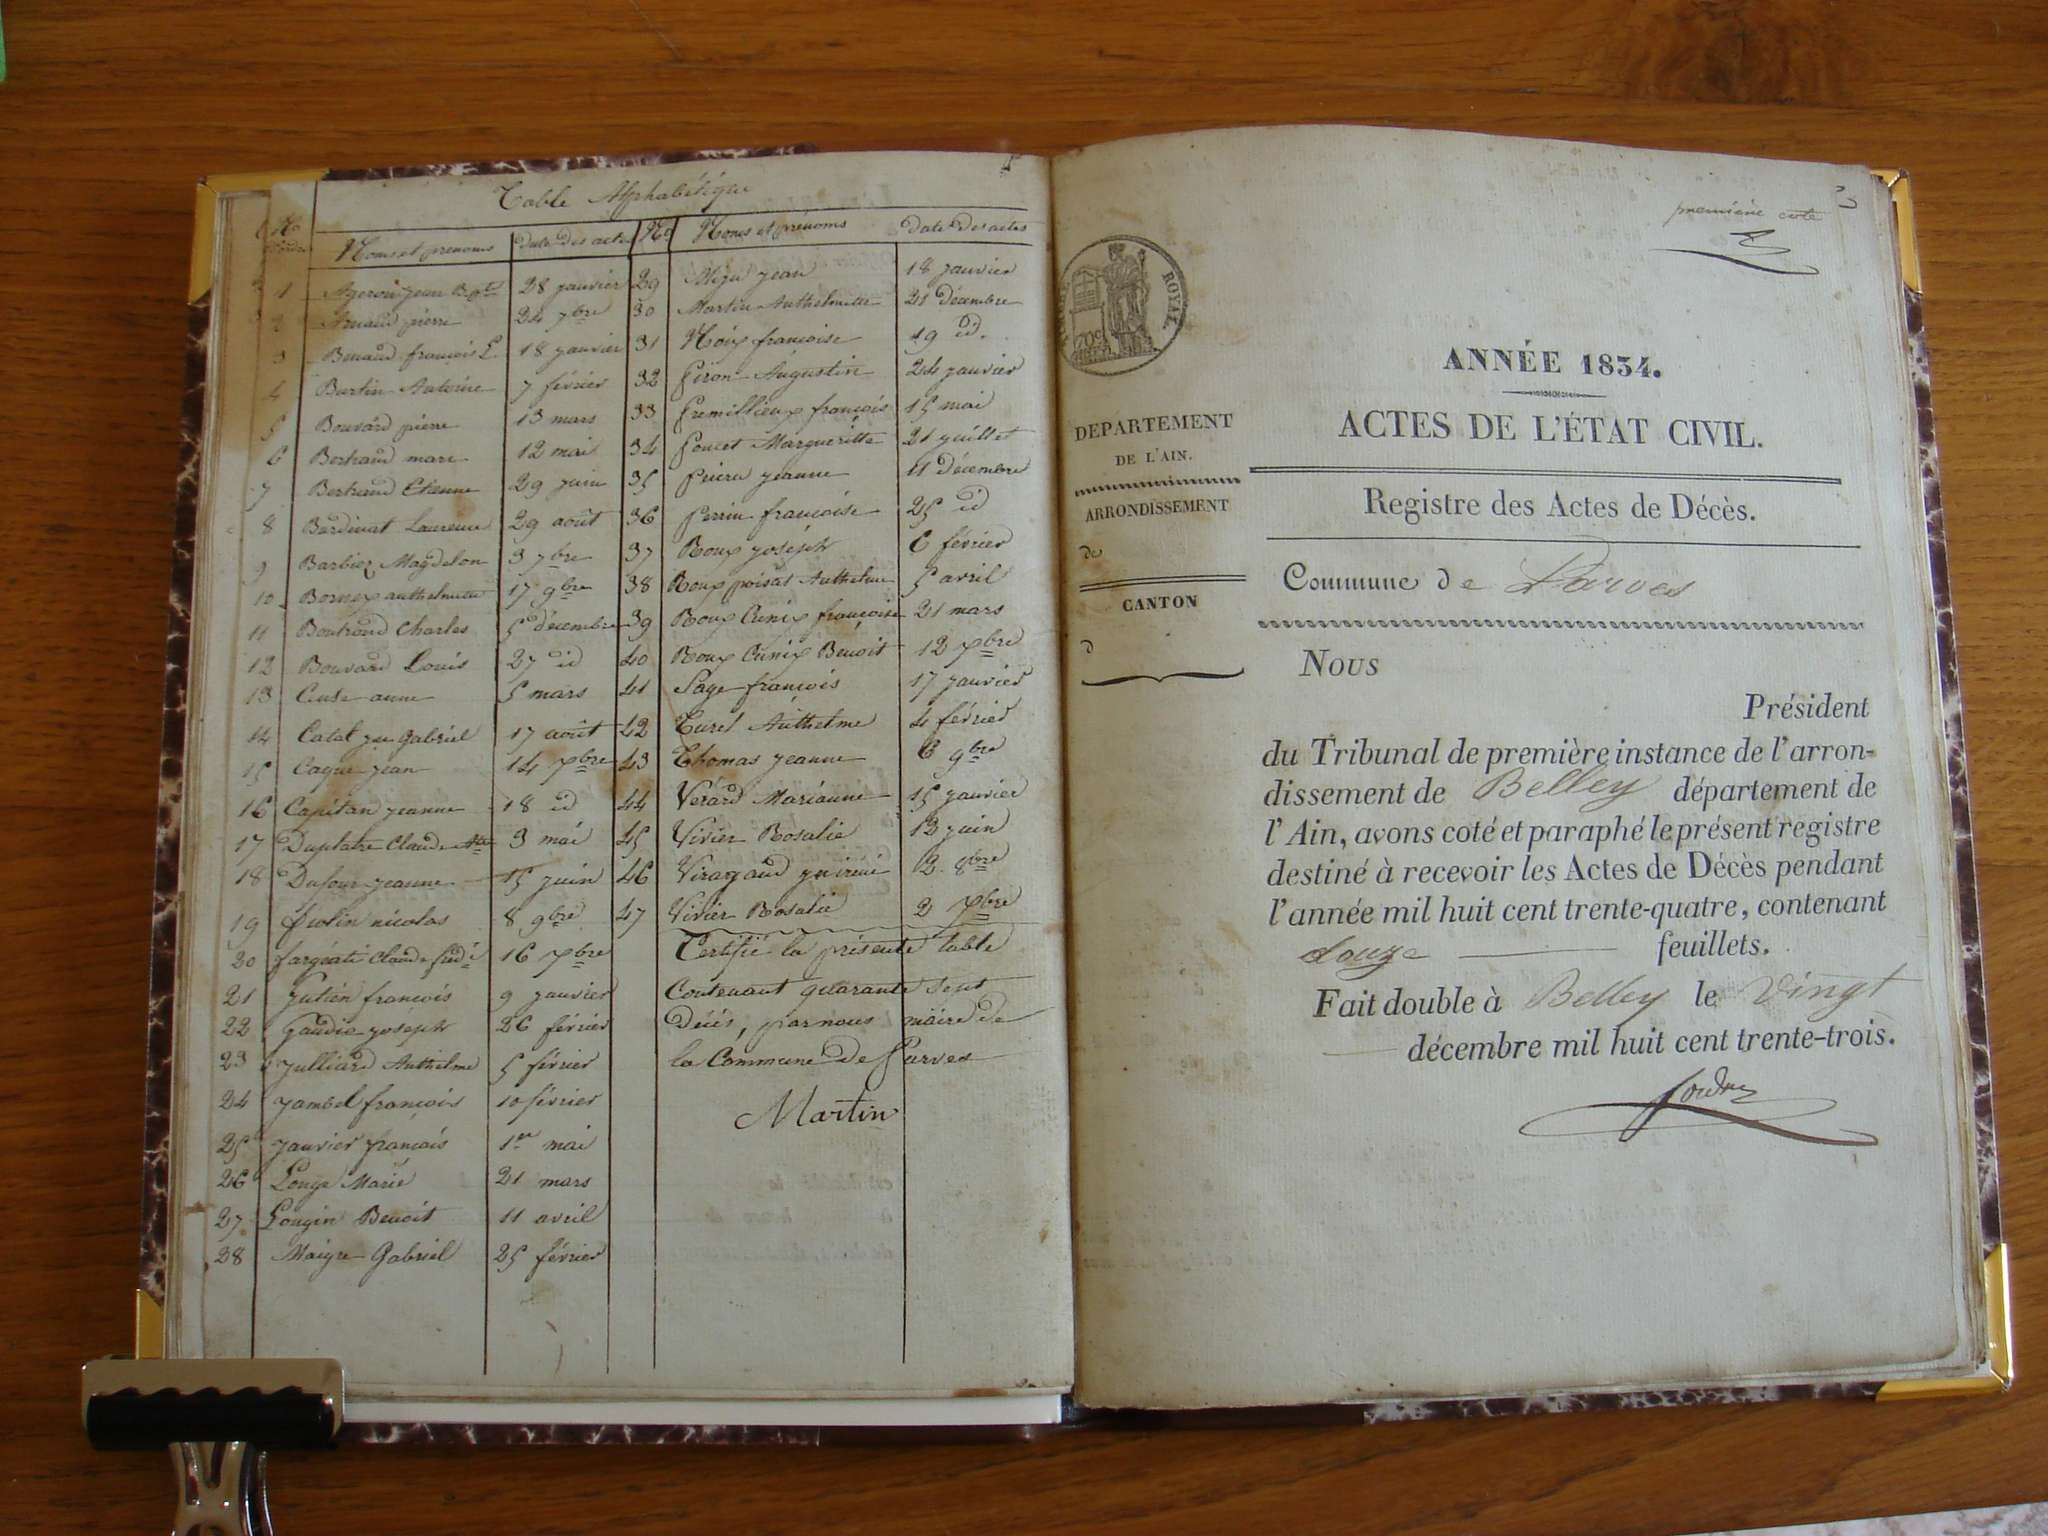 Table Alphabétique
Noms et prenoms date des actes No Noms et prénoms date des actes
1 Ageron jean Bpte 28 janvier 29 jean 18 janvier
2 Arnaud pierre 24 7bre 30 Martin Anthelmette 21 Décembre
3 françois 18 janvier 31 Noix francoise 19 id.
4 Burtin Antoine 7 février 32 Piron Augustin 24 janvier
5 Bouvard pierre 13 mars 33 Premillieux françois 15 mai
6 Bertrand marc 12 mai 34 Poncet Margueritte 21 juillet
7 Bertrand Etienne 29 juin 35 jeanne 11 décembre
8 Bardinat Laurence 29 août 36 Perrin francoise 25 id
9 Barbier Magdelon 3 7bre 37 Roux joseph 6 février
10 Bornex anthelmette 17 9bre 38 Roux poisat Anthelme 5 avril
11 Boutrond Charles 5 décembre 39 Roux Cunix françoise 21 mars
12 Bouvard Louis 27 id 40 Roux Cunix Benoit 12 Xbre
13 Cuse anne 5 mars 41 Sage françois 17 janvier
14 Catet Gabriel 17 août 42 Curet Anthelme 4 février
15 jean 14 Xbre 43 Thomas jeanne 6 9bre
16 Capitan jeanne 18 id 44 Vérard Marianne 15 janvier
17 Duplatre Claude 3 mai 45 Vivier Rosalie 12 juin
18 Dufour jeanne 15 juin 46 12 8bre
19 nicolas 8 9bre 47 Vivier Rosalie 2 Xbre
20 Claude 16 Xbre Certifié la présente table
21 françois 9 janvier Contenant quarante sept
22 Gaudie joseph 26 février Décés, par nous maire de
23 Julliard Anthelme 5 février la Commune de Parves
24 jambel francois 10 février Martin
25 janvier françois 1er mai
26 Longe Marie 21 mars
27 Lougin Benoit 11 avril
28 Maigre Gabriel 25 février
première cote
ROYAL
ANNÉE 1834.
ACTES DE L'ÉTAT CIVIL.
DÉPARTEMENT
DE L'AIN.
ARRONDISSEMENT
de
CANTON
d
Registre des Actes de Décès.
Commune de Parves
Nous
Président
du Tribunal de première instance de l'arron-
dissement de Belley département de
l'Ain, avons coté et paraphé le présent registre
destiné à recevoir les Actes de Décès pendant
l'année mil huit cent trente-quatre, contenant
douze feuillets.
Fait double à Belley le vingt
décembre mil huit cent trente-trois.